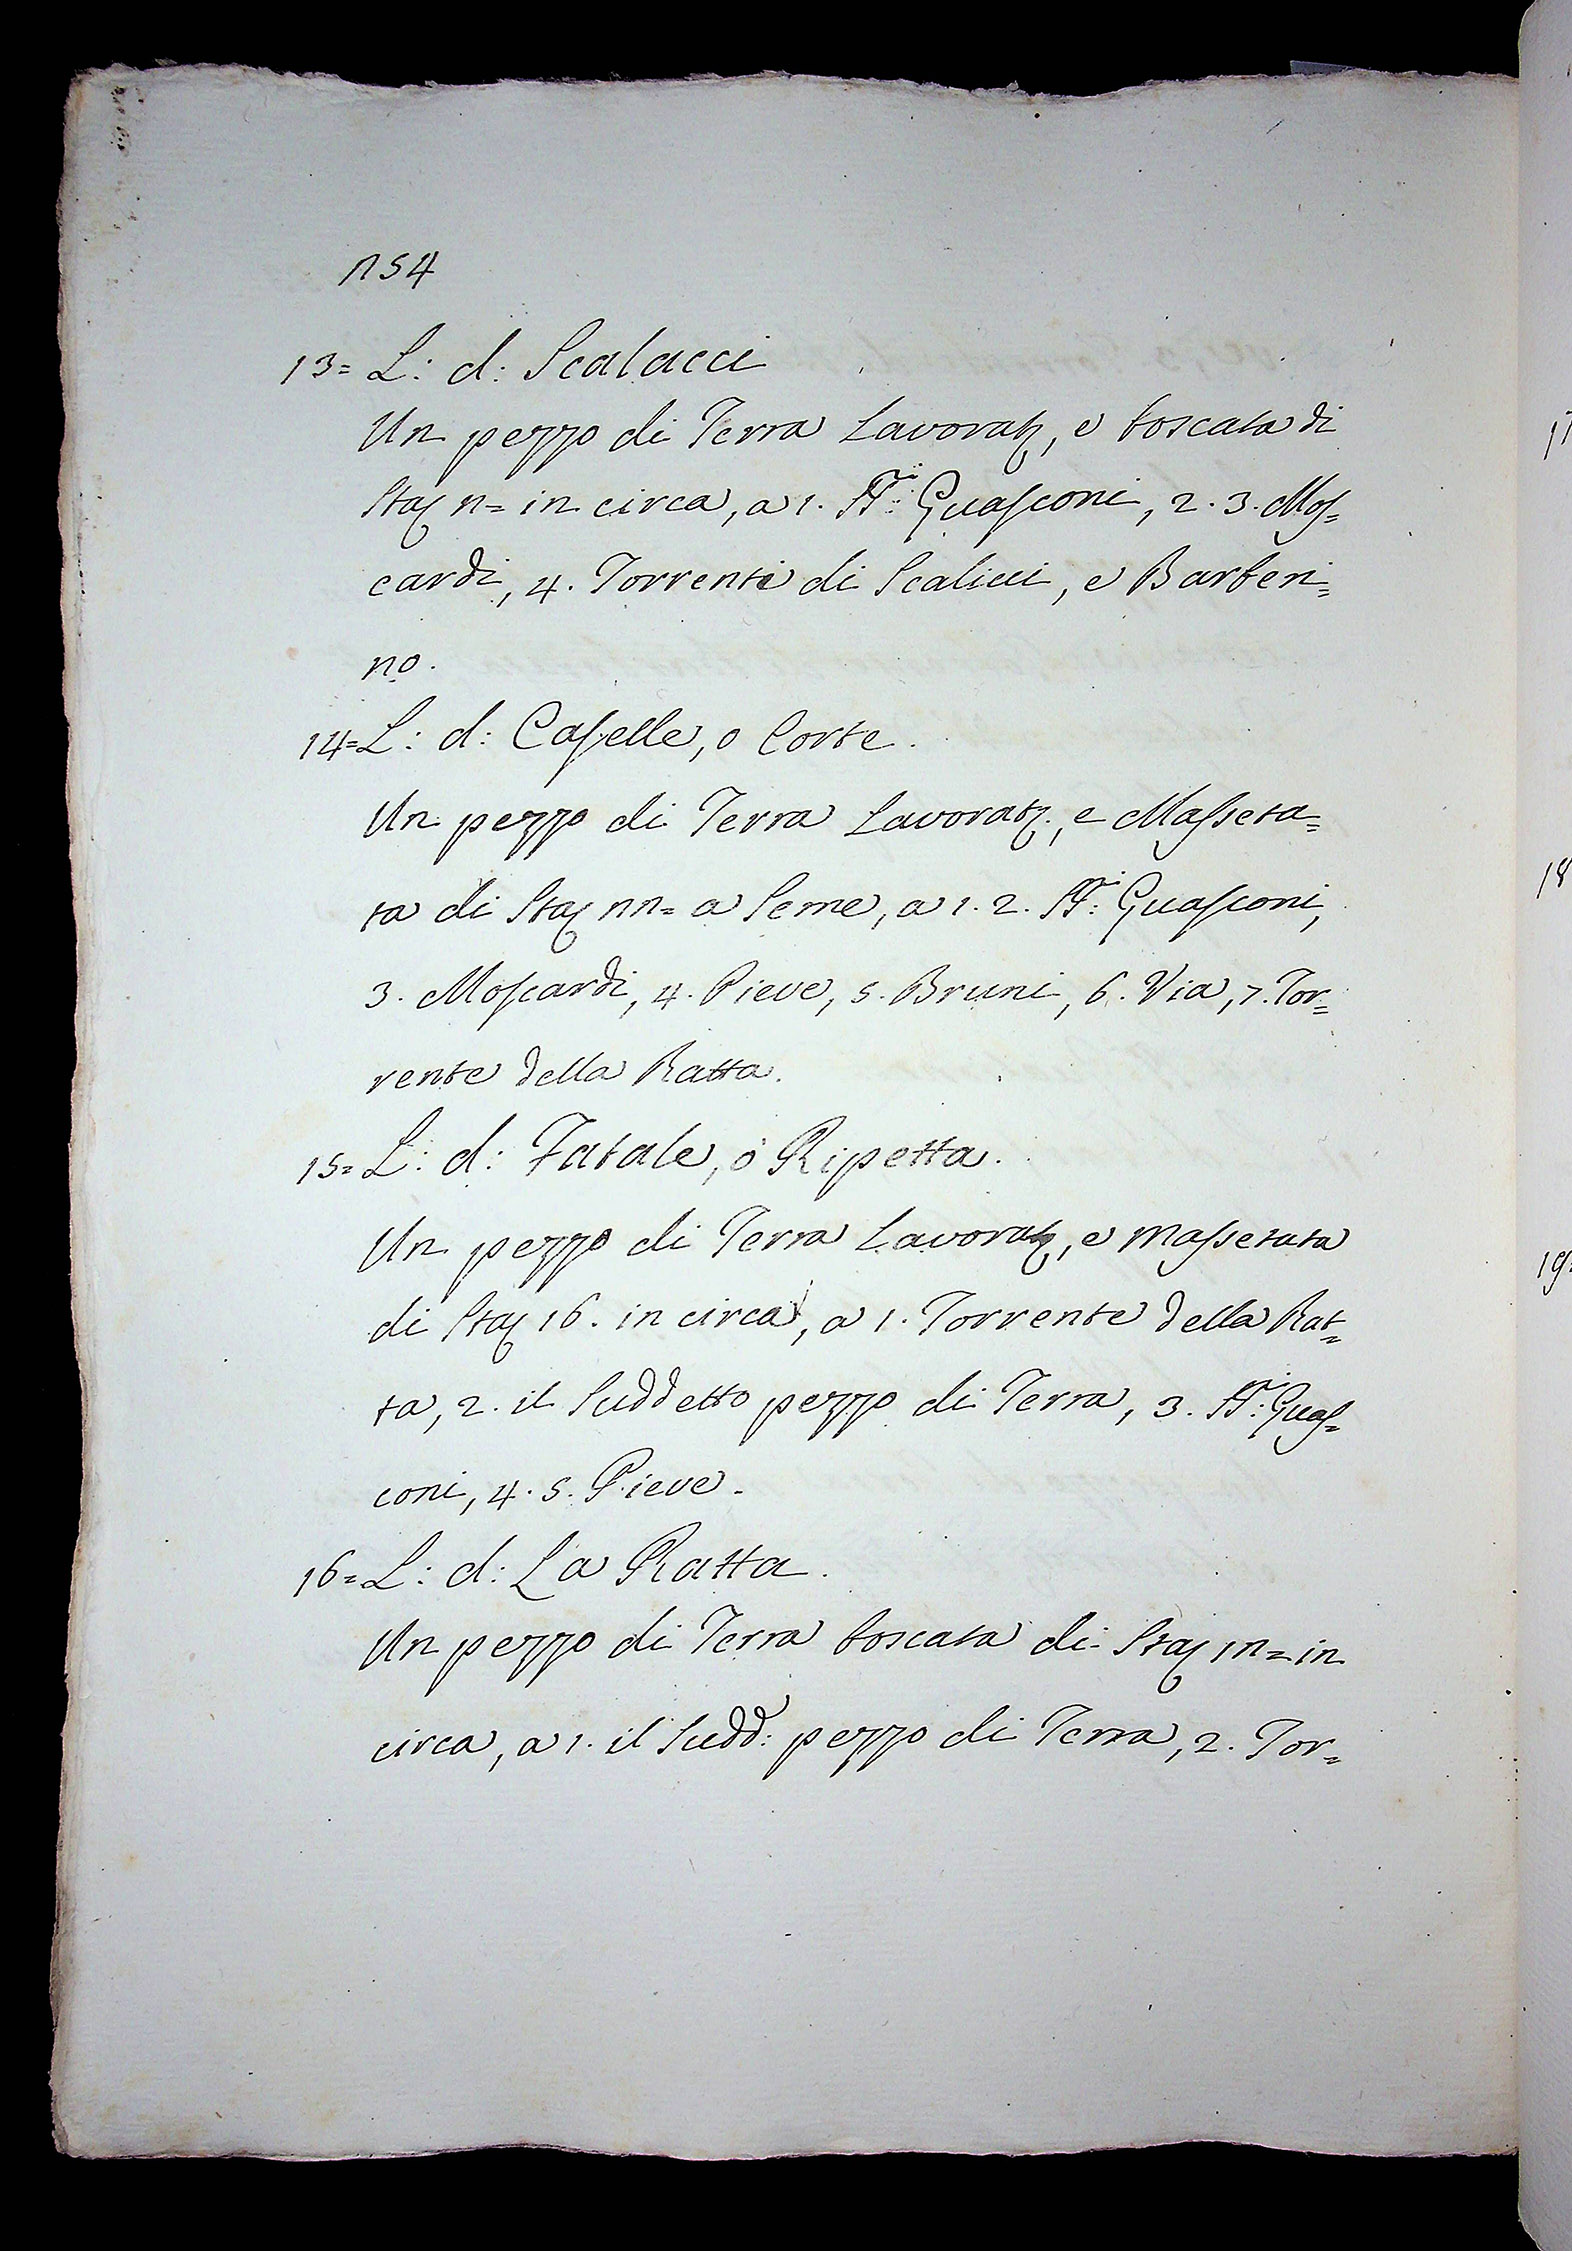 154
13= L: d: Scalacci
Un pezzo di Terra Lavorat:, e boscata di
Staj n= in circa, a 1. SS:ri Guasconi, 2. 3. Mos=
cardi, 4. Torrenti di Scalicci, e Barberi=
no.
14= L: d: Caselle, o Corte.
Un pezzo di Terra Lavorat:, e Masseta=
ta di Staj nn= a Seme, a 1. 2. SS:ri Guasconi,
3. Moscardi, 4. Pieve, 5. Bruni, 6. Via, 7. Tor=
rente della Ratta.
15= L: d: Fatale, ò Ripetta.
Un pezzo di Terra Lavorat:, e massetata
di Staj 16. in circa, a 1. Torrente della Rat=
ta, 2. il Suddetto pezzo di Terra, 3. SS:ri Guas=
coni, 4. 5. Pieve.
16= L: d: La Ratta.
Un pezzo di Terra boscata di Staj 1n= in
circa, a 1. il Sudd: pezzo di Terra, 2. Tor=
18
19